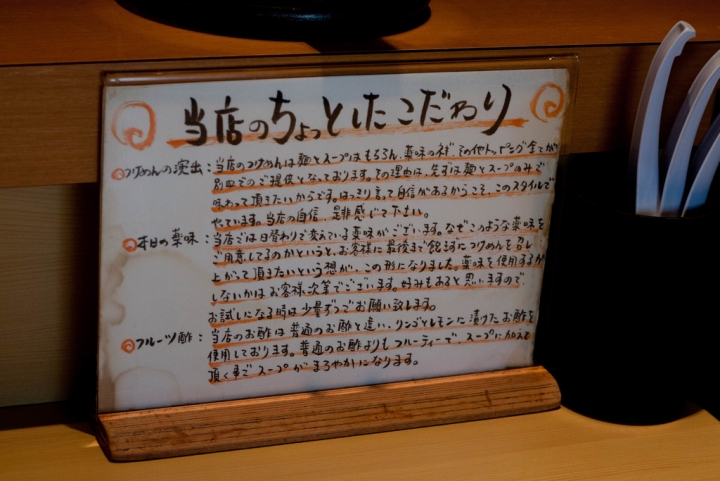 当店のちょっとしたこだわり
つけめんの演出：当店のつけめんは麺とスープはもちろん、薬味のネギ、その他トッピング全てが
別皿でのご提供となっております。その理由は、先ずは麺とスープのみで
味わって頂きたいからです。はっきり言って自信があるからこそ、このスタイルで
やっています。当店の自信、是非感じて下さい。
本日の薬味：当店では日替わりで変えている薬味がございます。なぜこのような薬味を
ご用意してるのかというと、お客様に最後まで飽きずにつけめんを召し
上がって頂きたいという想いが、この形になりました。薬味を使用するか
しないかはお客様次第でございます。好みもあると思いますので、
お試しになる時は少量ずつでお願い致します。
フルーツ酢：当店のお酢は普通のお酢と違い、リンゴとレモンに漬けたお酢を
使用しております。普通のお酢よりもフルーティーで、スープに加えて
頂く事でスープがまろやかになります。